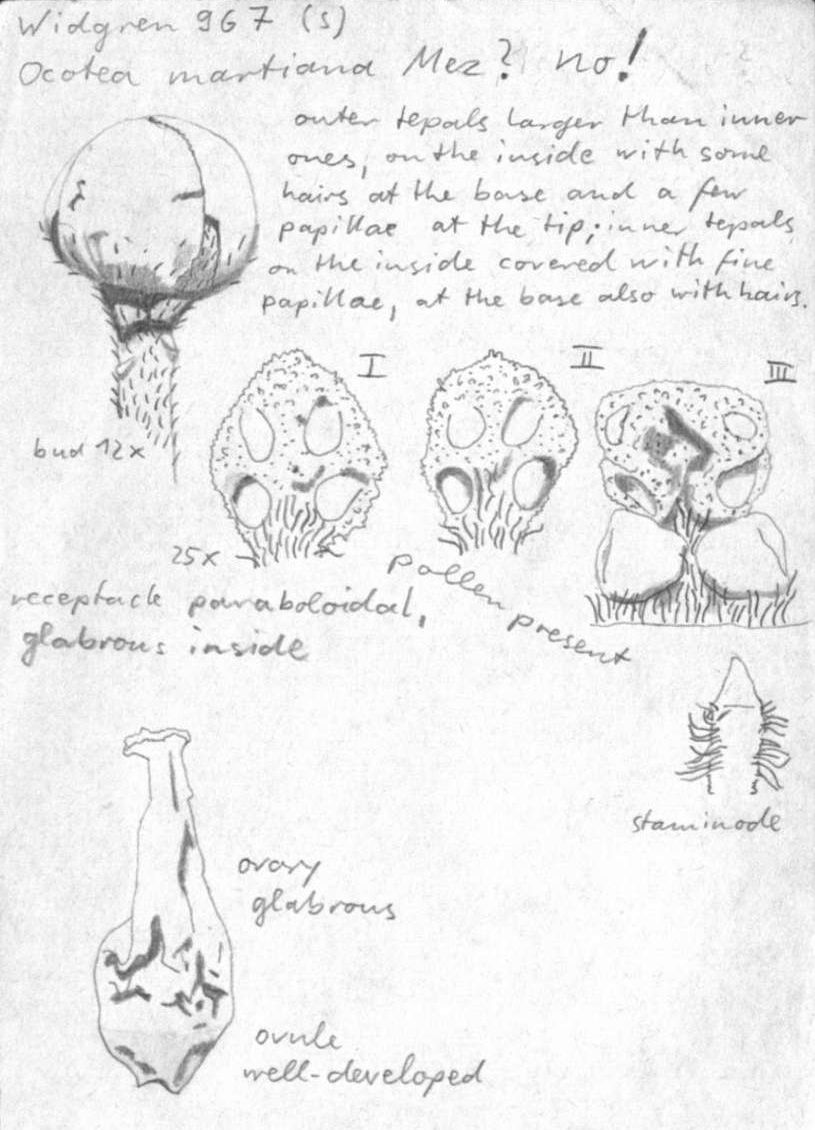 Widgren 967 (S)
Ocotea martiana Mez? no!
outer tepals larger than inner
ones, on the inside with some
hairs at the base and a few
papillae at the tip; inner tepals
on the inside covered with fine
papillae, at the base also with hairs.
I
II
III
bud 12x
25x
pollen present
receptacle paraboloidal,
glabrous inside
staminode
ovary
glabrous
ovule
well-developed